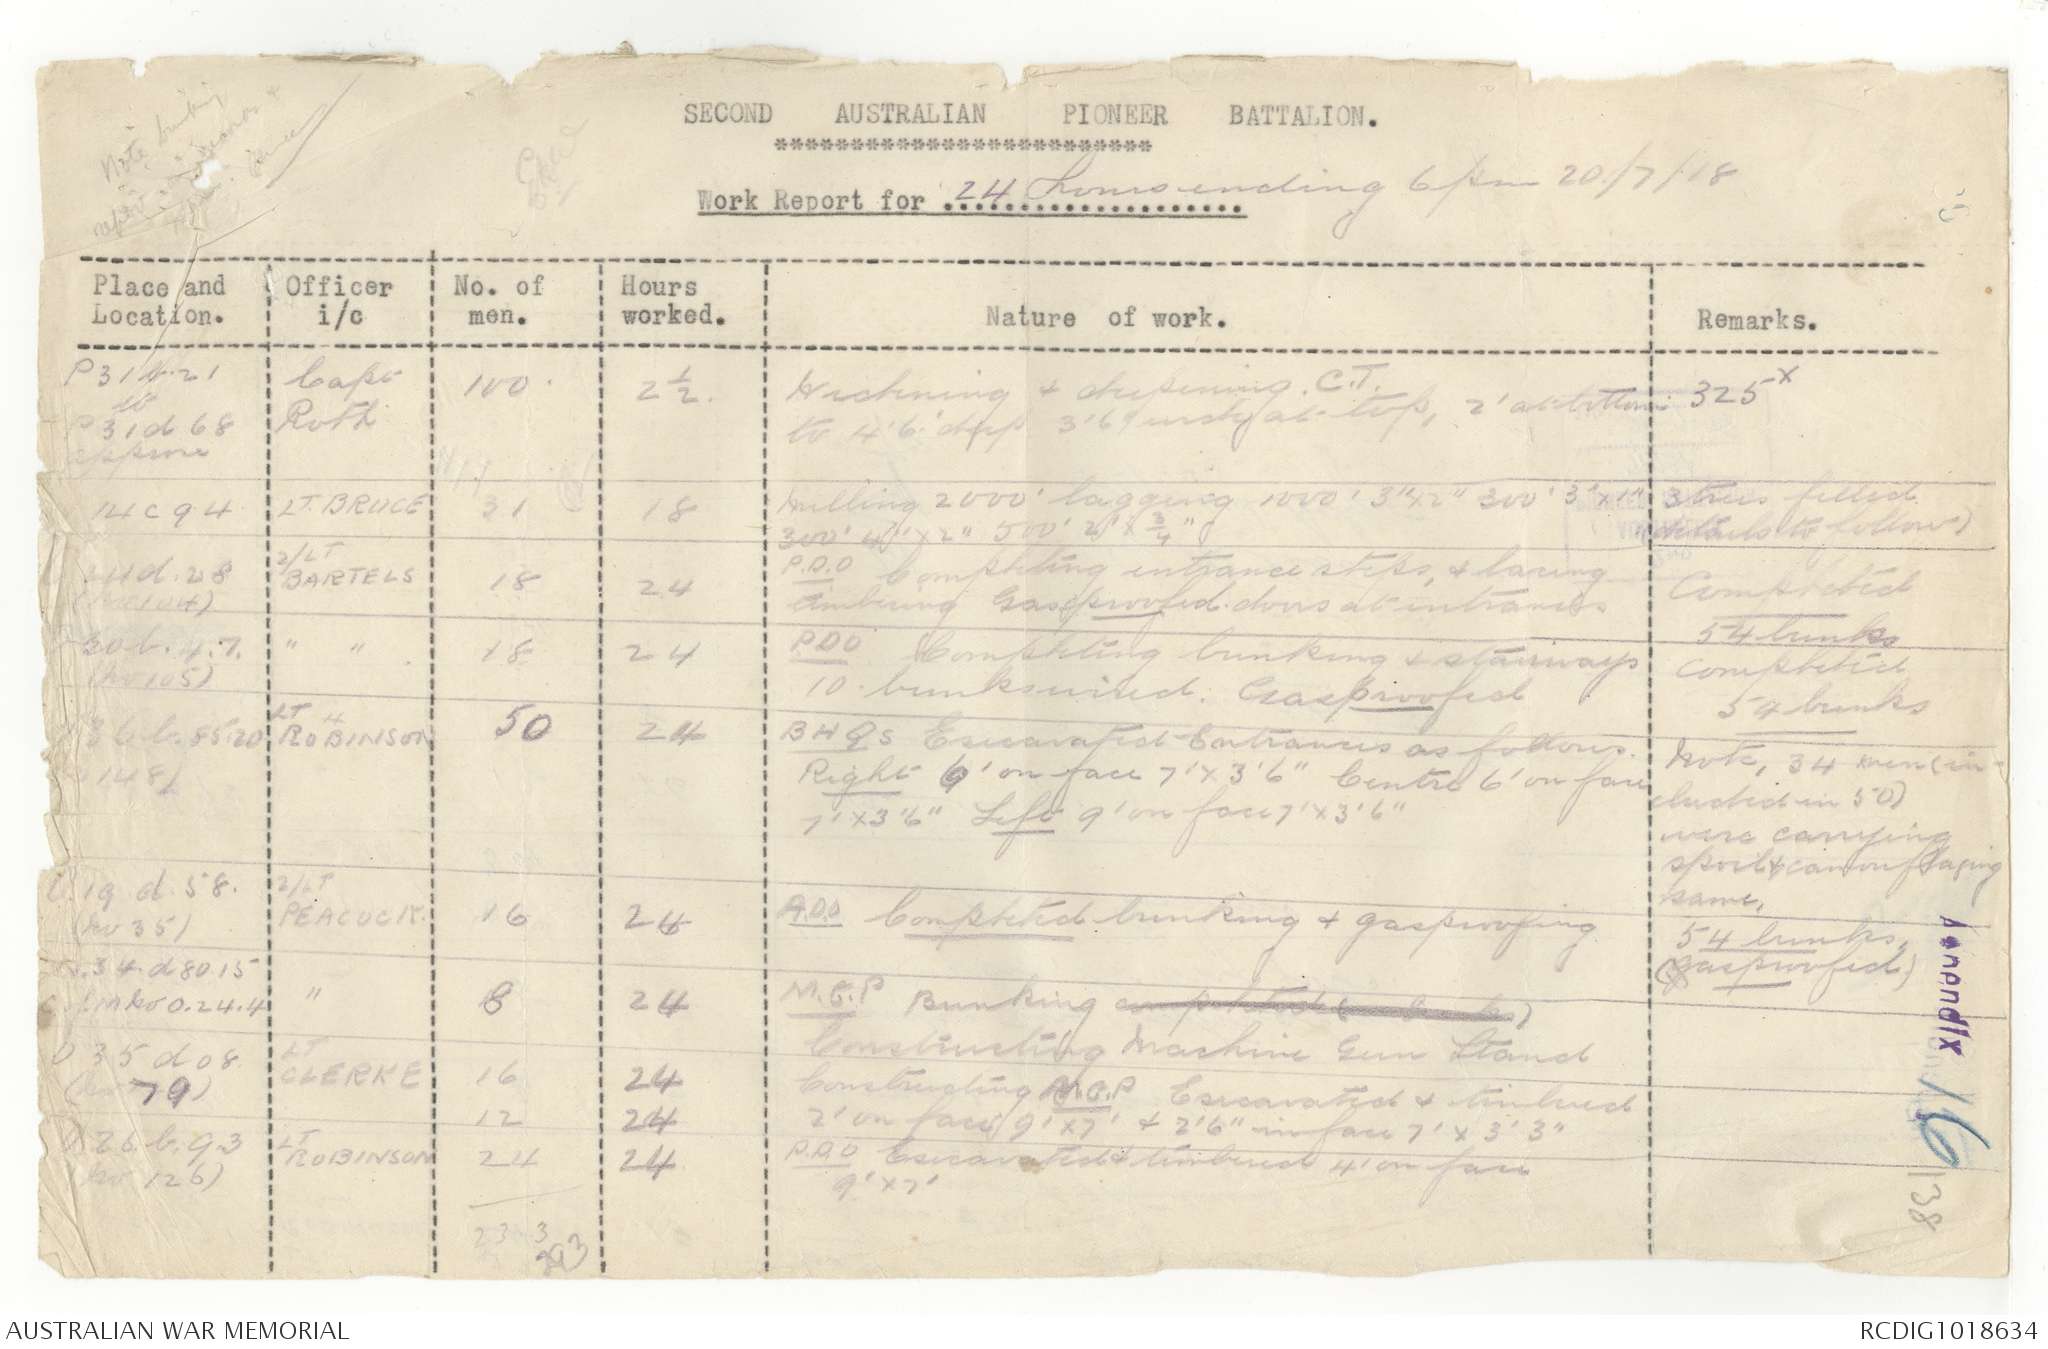 Note bunking
report
SECOND AUSTRALIAN PIONEER BATTALION.
************************
Work Report for 24 hours ending 6 pm 20/7/18
Place and Location.
Officer i/c
No. of men.
Hours worked.
Nature of work.
Remarks.
P31b.21
to
P31d 68
approx
Capt
Roth
100.
2 1/2.
Widening & deepening C.T.
to 4'6" deep 3'6" wide at top, 2' at bottom
325x
14c94
LT. BRUCE
31
18
Milling 2000' lagging 1000' 3"x2" 300' 3"x1"
300' 4"x2" 500' 2"x 3/4"
3 trees felled
details to follow)
d.28
(No 104)
2/LT
BARTELS
18
24
P.D.O Completing entrance steps, & lacing
timbering Gasproofed doors at entrances
Completed
54 bunks
30b.4.7.
(No 105)
" "
18
24
P.D.O Completing bunking & stairways
10 bunks wired. Gasproofed
completed
54 bunks
36b.85.20
148)
LT
ROBINSON
50
24
BHQs Excavated Entrances as follows.
Right 6' on face 7'x3'6" Centre 6' on face
7'x3'6" Left 9' on face 7'x3'6"
Note, 34 men (in-
cluded in 50)
were carrying
spoil & camouflaging
same.
19 d.58.
(No 35)
2/LT
PEACOCK.
16
24
A.D.O Completed bunking & gasproofing
54 bunks,
(gasproofed)
34.d80.15
No 0.24.4
"
8
24
M.G.P Bunking completed
Constructing Machine Gun Stand
35 d 08.
(No 79)
LT
CLERKE
16
24
12
24
Constructing M.G.P Excavated & timbered
2' on face 9'x7' & 2'6" in face 7'x3'3"
26.b.93
(No 126)
LT
ROBINSON
24
24
P.D.O Excavated & timbered 4' on face
9'x7'
293
Appendix
16
138
AUSTRALIAN WAR MEMORIAL
RCDIG1018634